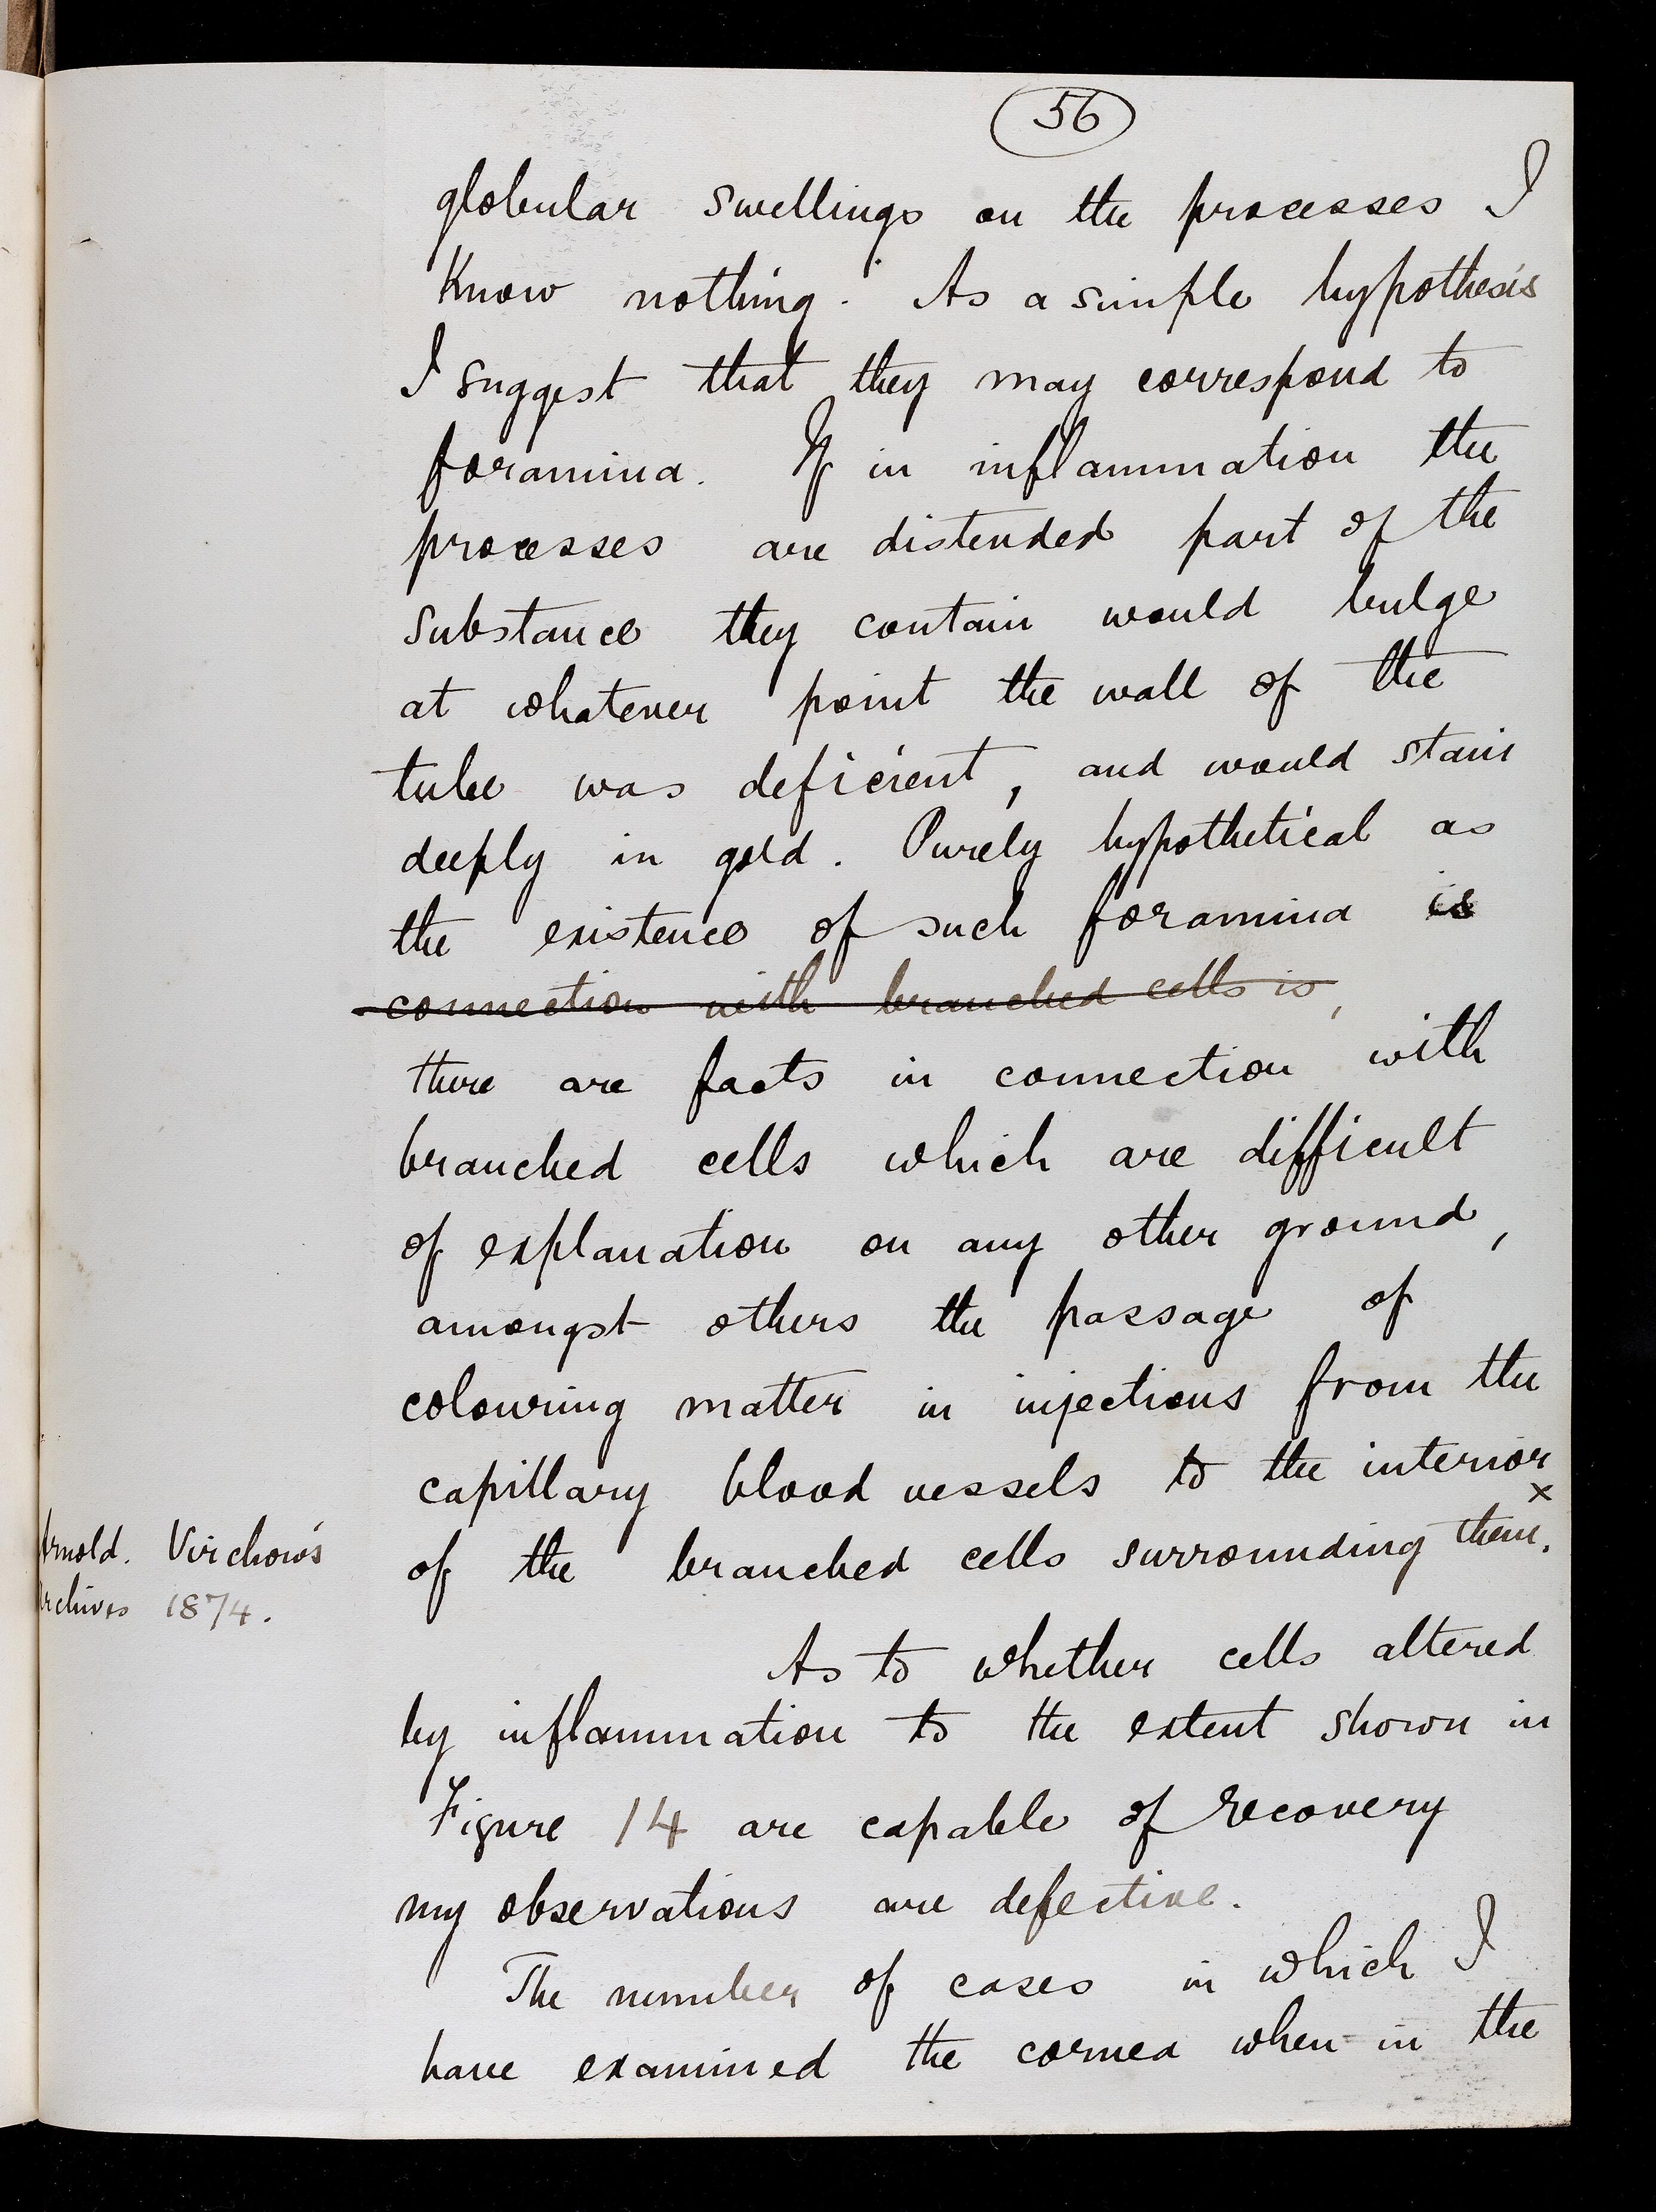 56
globular swellings on the processes I
Know nothing. As a simple hypothesis
I suggest that they may correspond to
foramina. If in inflammation the
processes are distended part of the
substance they contain would bulge
at whatever point the wall of the
tube was deficient, and would stain
deeply in gold. Purely hypothetical as
the existence of such foramina is
connection with branched cells is,
there are facts in connection with
branched cells which are difficult
of explanation on any other ground,
amongst others the passage of
colouring matter in injections from the
capillary blood vessels to the interior
x
of the branched cells surrounding them.
Arnold. Virchow's
Archives 1874.
As to whether cells altered
by inflammation to the extent shown in
Figure 14 are capable of recovery
my observations are defective.
The number of cases in which I
have examined the cornea when in the